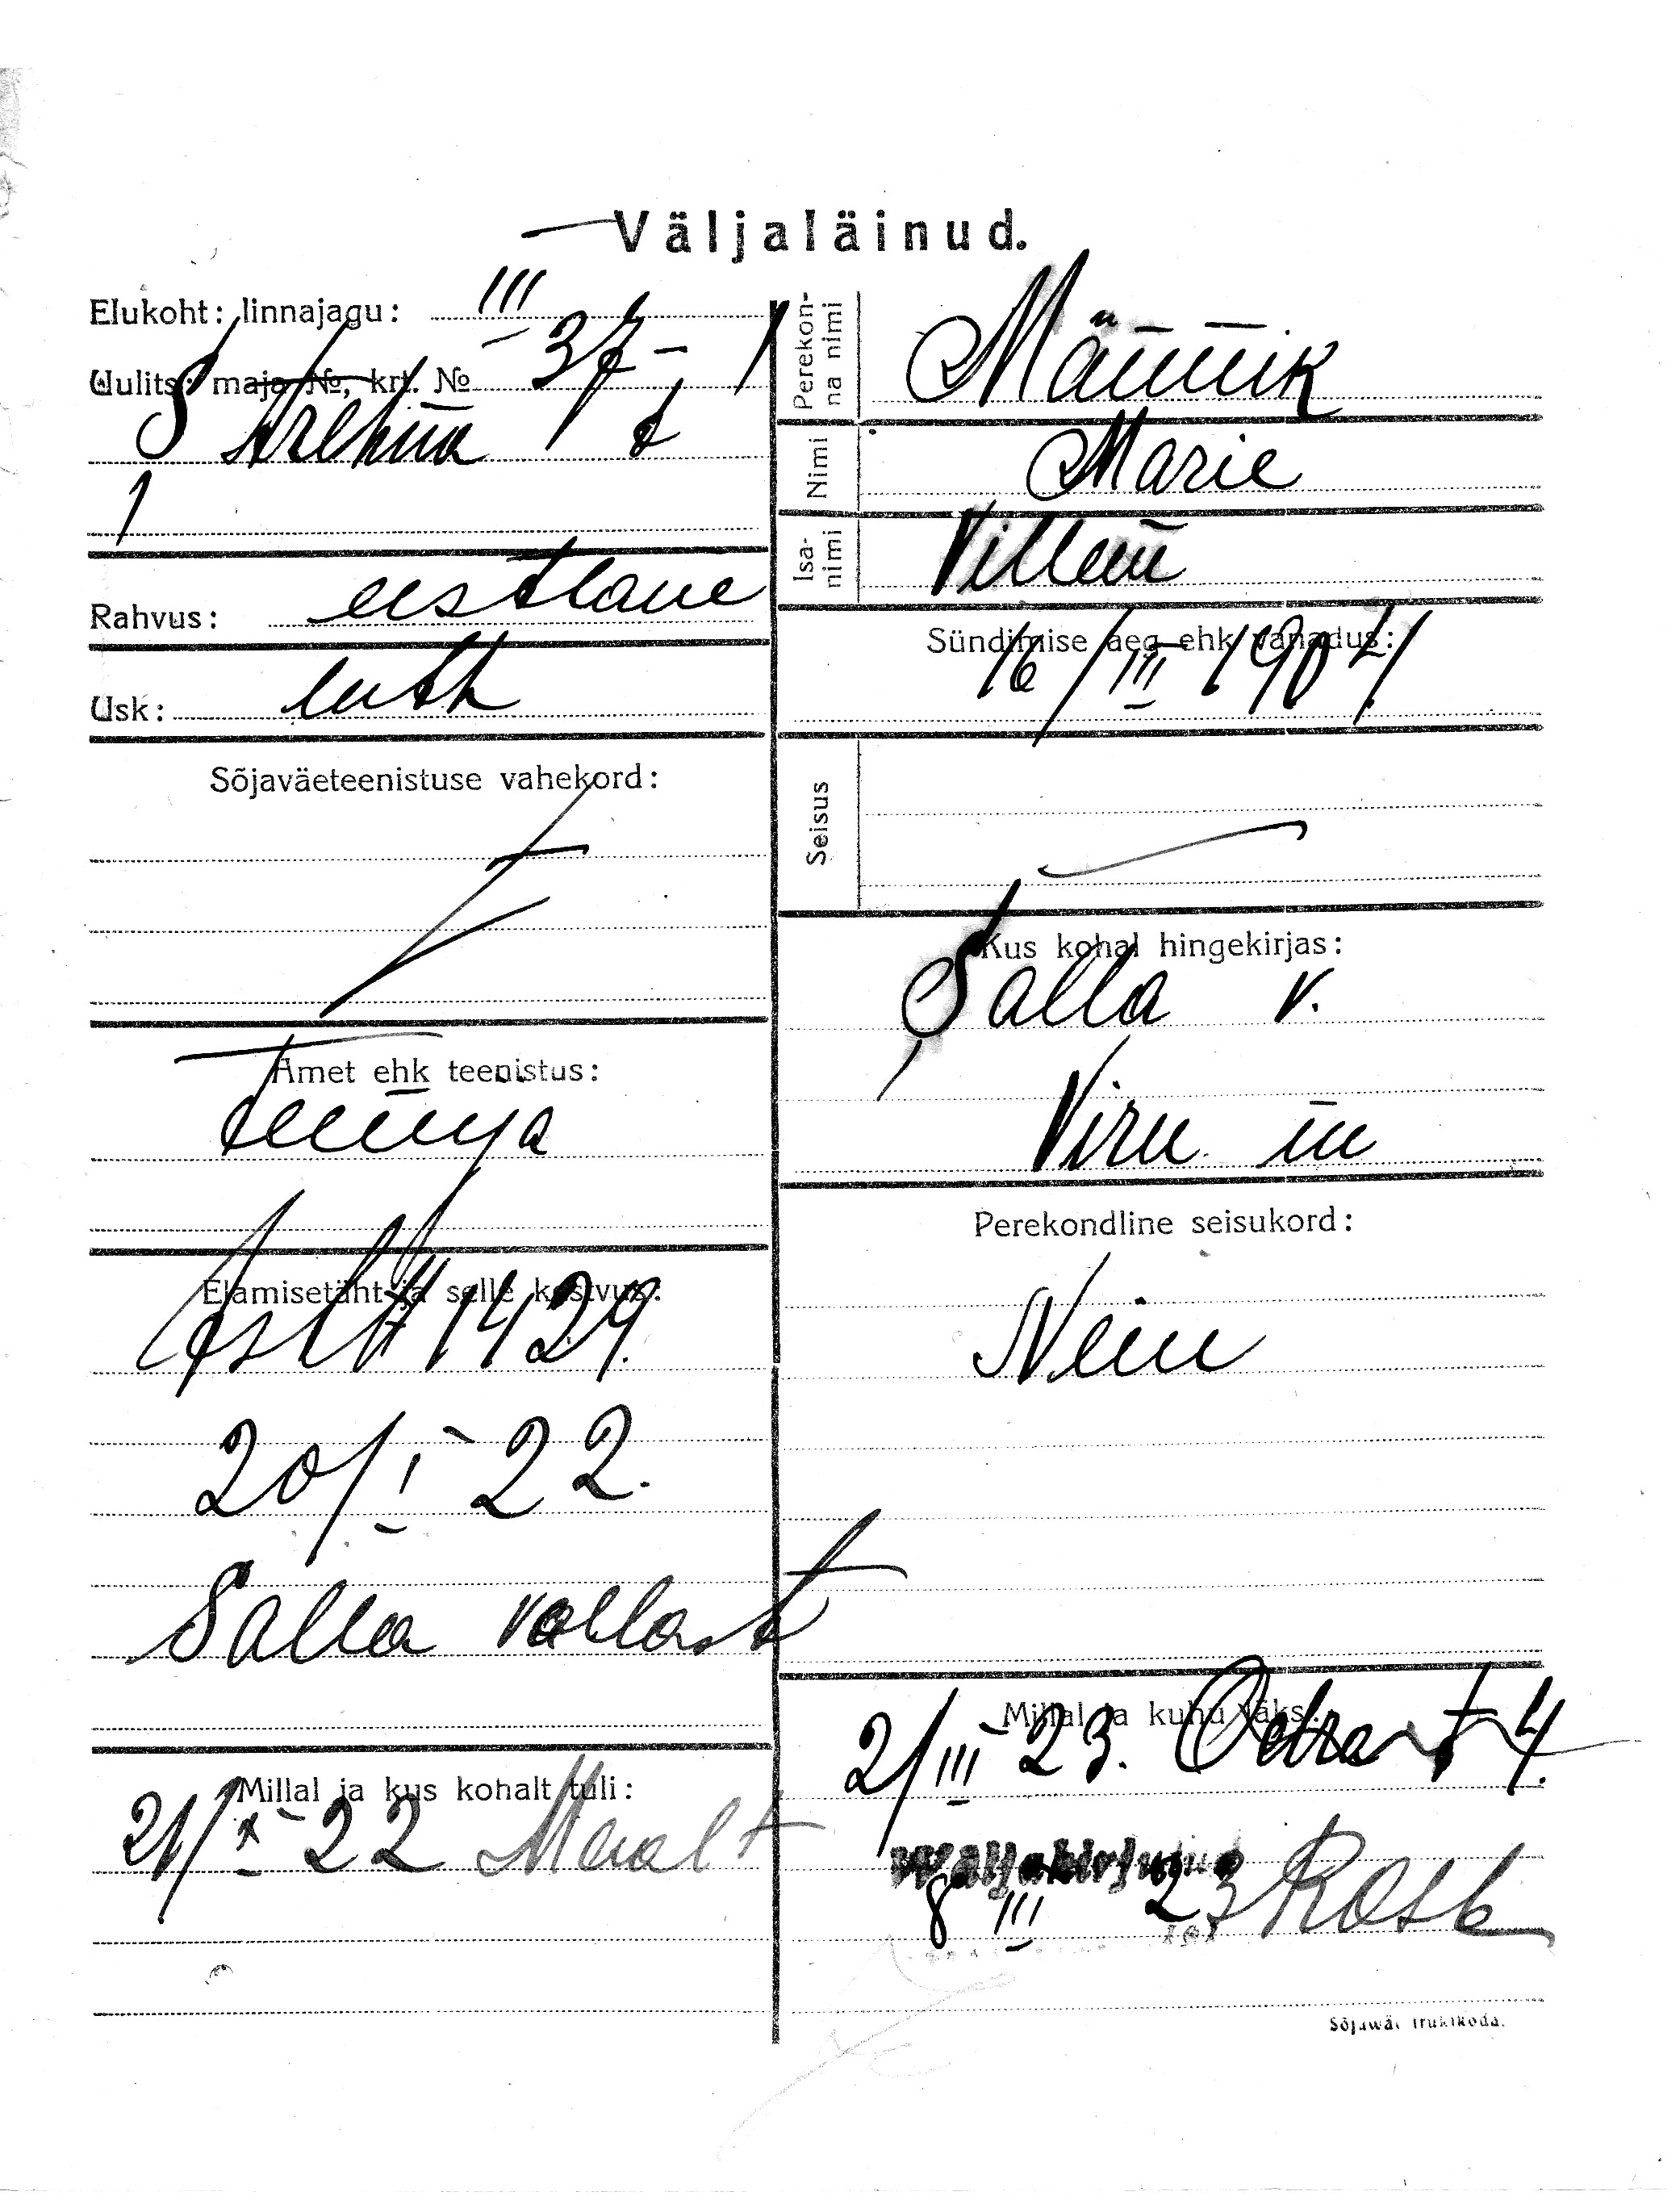 Väljaläinud.
Elukoht: linnajagu: III
Uulits: maja №, krt. № 37-1
S. t.
Rahvus: eestlane
Usk: luth
Sõjaväeteenistuse vahekord:
Amet ehk teenistus:
teenija
Elamisetäht ja selle kestvus:
1429.
20/I 22.
Salla vallast
Millal ja kus kohalt tuli:
21/X 22 Maalt
Perekonna nimi Männik
Nimi Marie
Isanimi Villem
Sündimise aeg ehk vanadus:
16/III 1904
Seisus
Kus kohal hingekirjas:
Salla v.
Viru m
Perekondline seisukord:
Neiu
Millal ja kuhu läks:
2/III 23. Odra t 4.
Väljakirjutud
8 III 23
Sõjawäe trükikoda.